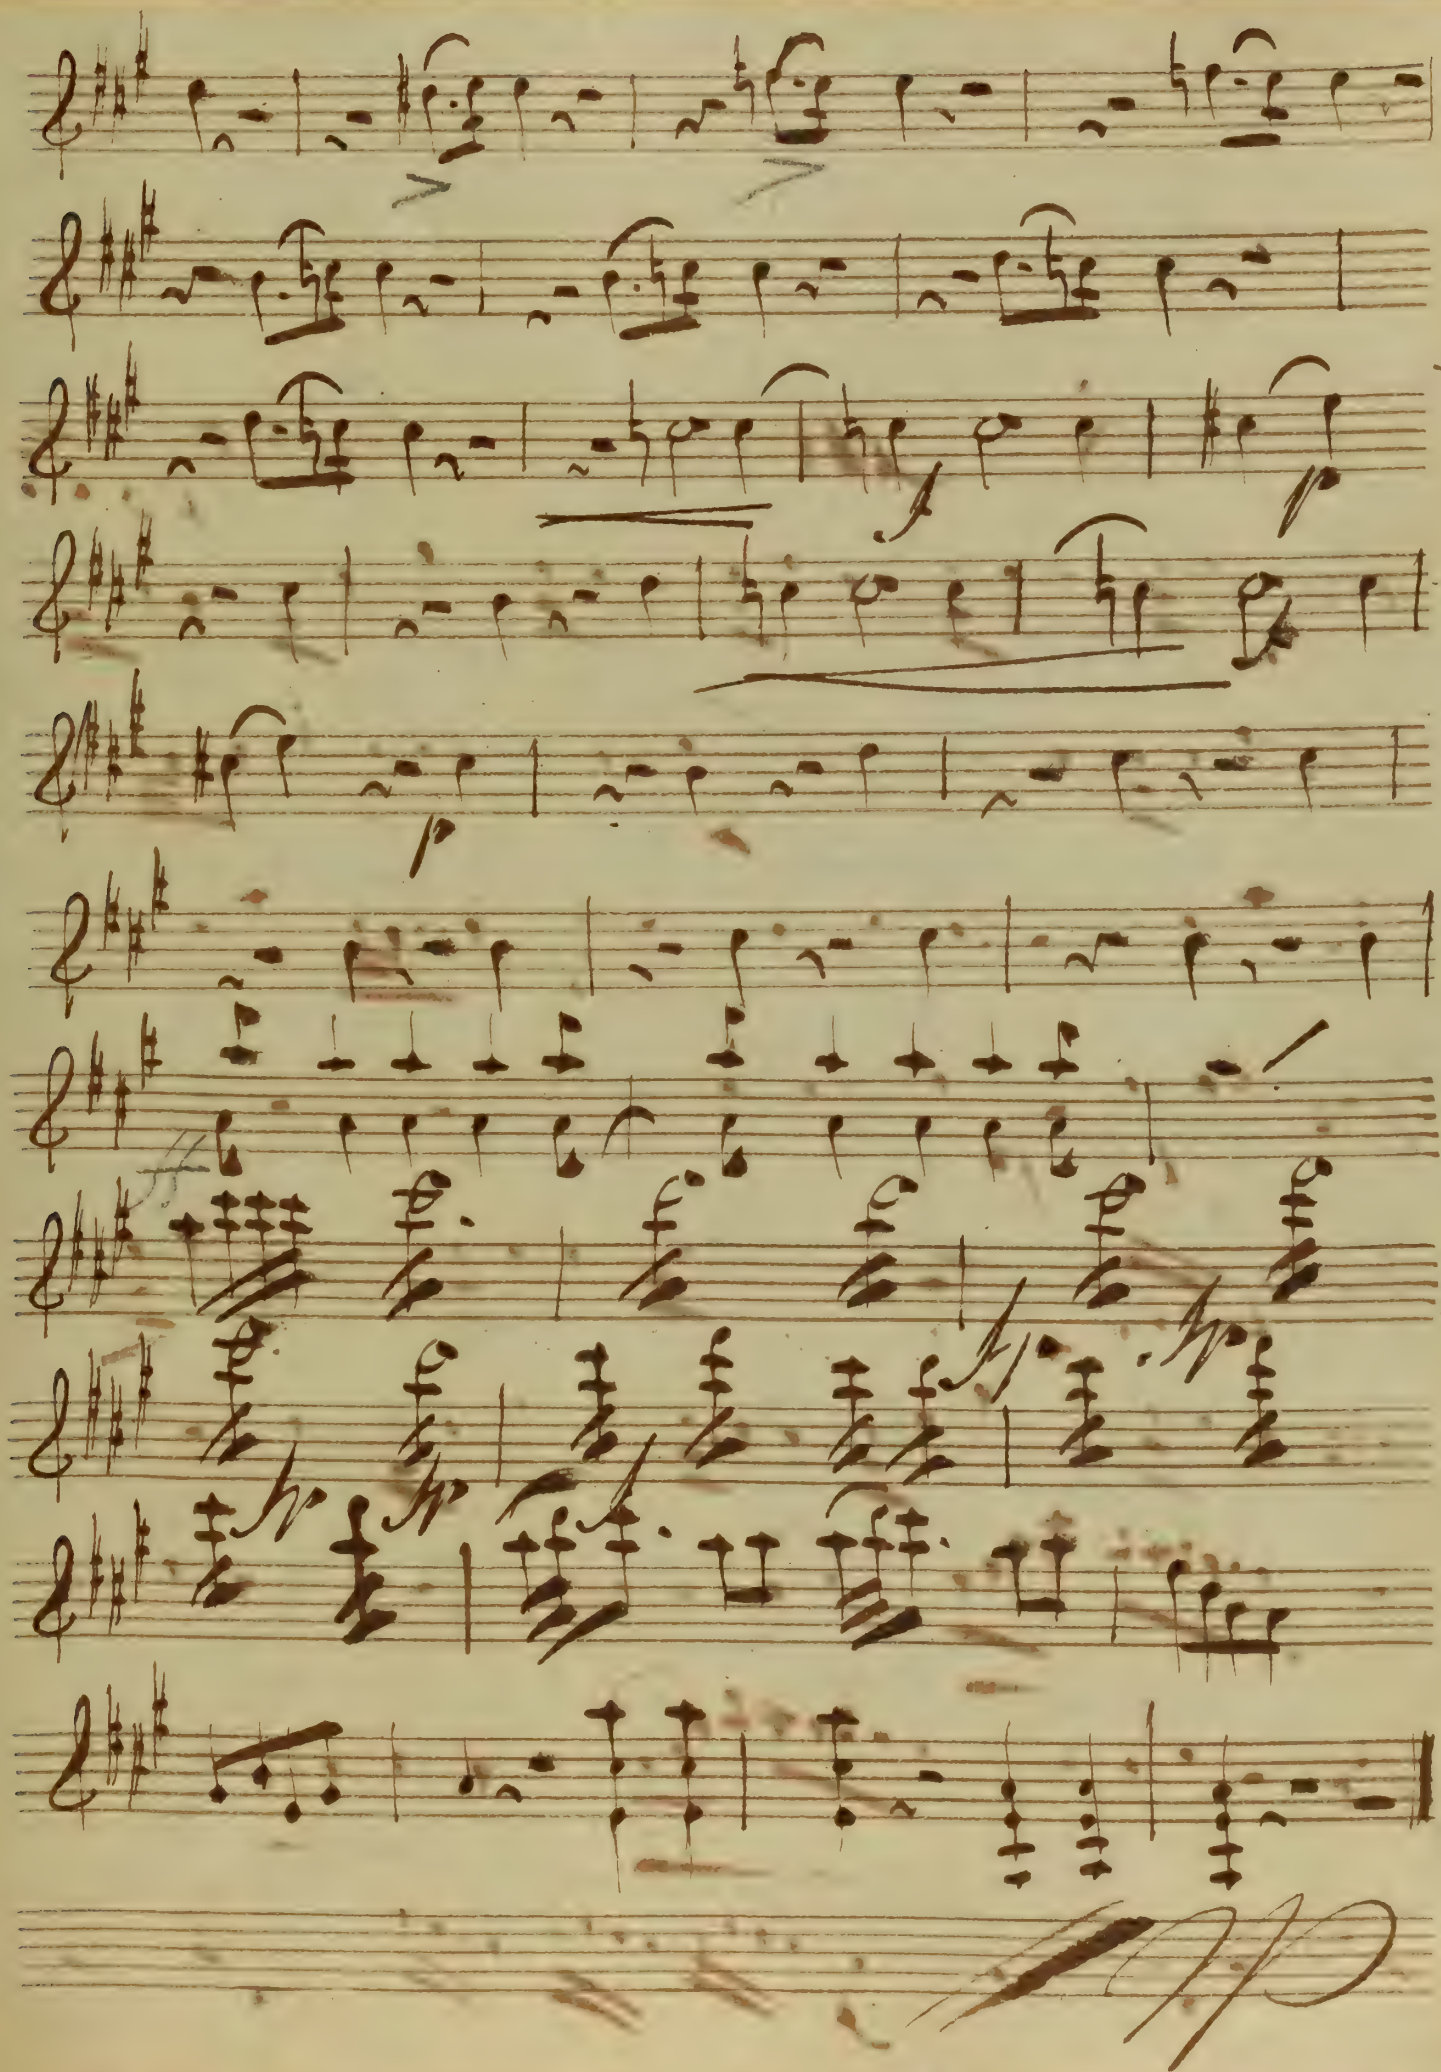 f
p
p
ff
fp fp
fp fp f